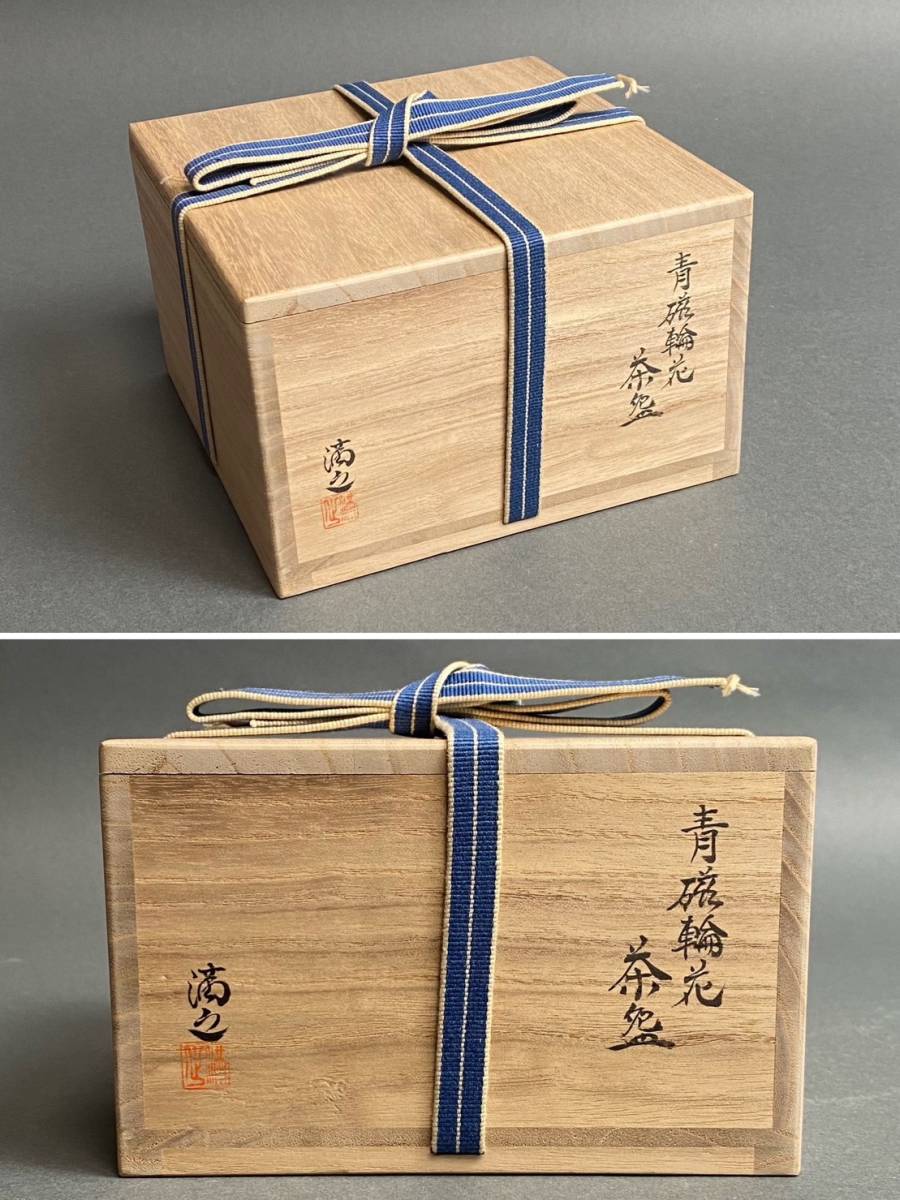 青磁輪花
茶盌
満之
青磁輪花
茶盌
満之